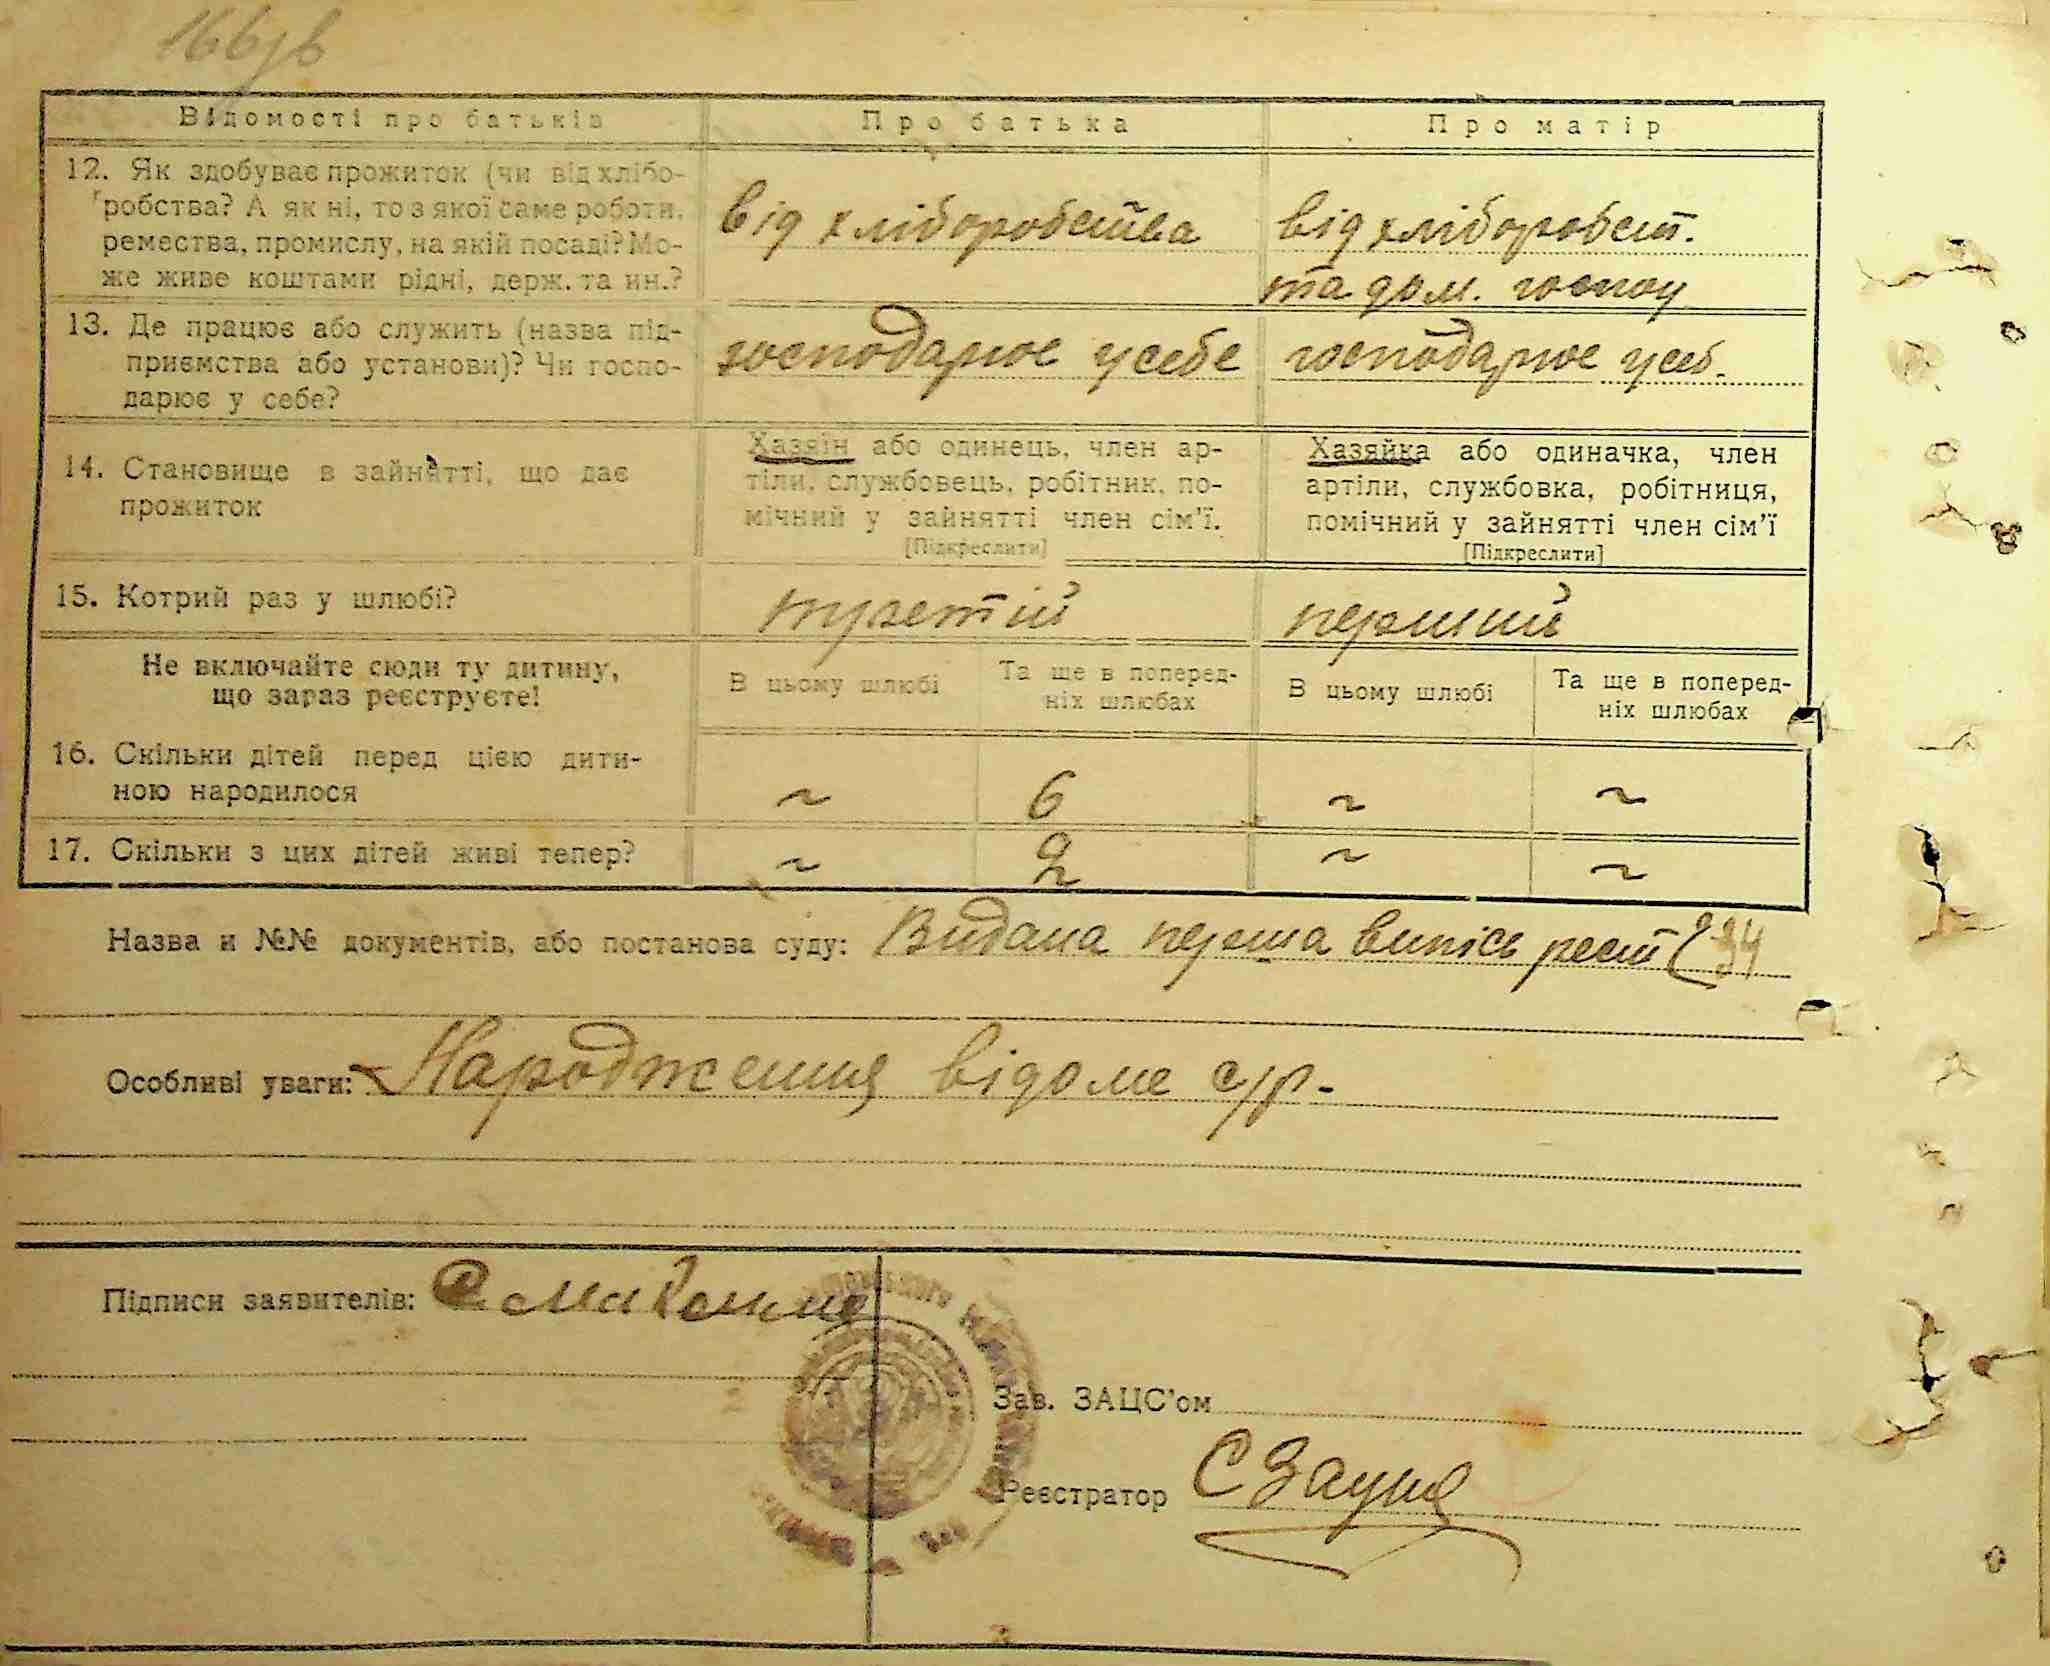 166зв
Відомості про батьків
Про батька
Про матір
12. Як здобуває прожиток (чи від хлібо-
робства? А як ні, то з якої саме роботи,
ремества, промислу, на якій посаді? Мо-
же живе коштами рідні, держ. та ин.?
від хліборобства
від хліборобст.
та дом. господ
13. Де працює або служить (назва під-
приємства або установи)? Чи госпо-
дарює у себе?
господарює у себе
господарює у себ.
14. Становище в зайнятті, що дає
прожиток
Хазяїн або одинець, член ар-
тіли, службовець, робітник, по-
мічний у зайнятті член сім'ї.
[Підкреслити]
Хазяйка або одиначка, член
артіли, службовка, робітниця,
помічний у зайнятті член сім'ї
[Підкреслити]
15. Котрий раз у шлюбі?
третій
перший
Не включайте сюди ту дитину,
що зараз реєструєте!
В цьому шлюбі
Та ще в поперед-
ніх шлюбах
В цьому шлюбі
Та ще в поперед-
ніх шлюбах
16. Скільки дітей перед цією дити-
ною народилося
~ 6 ~ ~
17. Скільки з цих дітей живі тепер?
~ 2 ~ ~
Назва и №№ документів, або постанова суду: Видана перша випісь реєст
Особливі уваги: Народження відоме с/р.
Підписи заявителів:
Зав. ЗАЦС'ом
Реєстратор